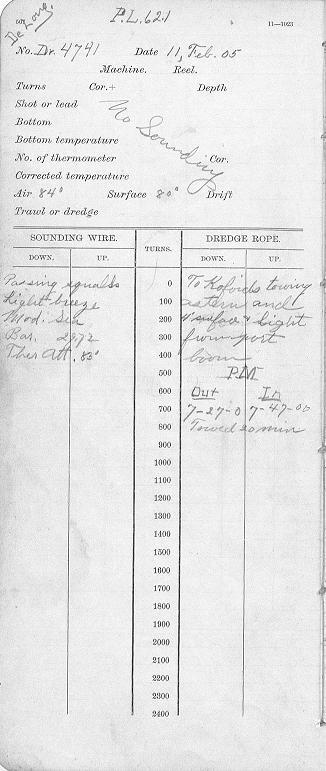 De Long.
P.L. 621
11—1023
No. Dr. 4741 Date 11, Feb. 05
Machine. Reel.
Turns Cor.+ Depth
Shot or lead
Bottom
No Sounding
Bottom temperature
No. of thermometer Cor.
Corrected temperature
Air 84° Surface 80° Drift
Trawl or dredge
SOUNDING WIRE. TURNS. DREDGE ROPE.
DOWN. UP. DOWN. UP.
Passing squalls 0 To Kofoids towing
Light breeze 100 astern and
Mod. Sea 200 surface & Light
Bar. 29.72 300 from port
Ther Att. 83° 400 boom
500 PM
600 Out In
700 7-27-0 7-47-00
800 Towed 20 min
900
1000
1100
1200
1300
1400
1500
1600
1700
1800
1900
2000
2100
2200
2300
2400